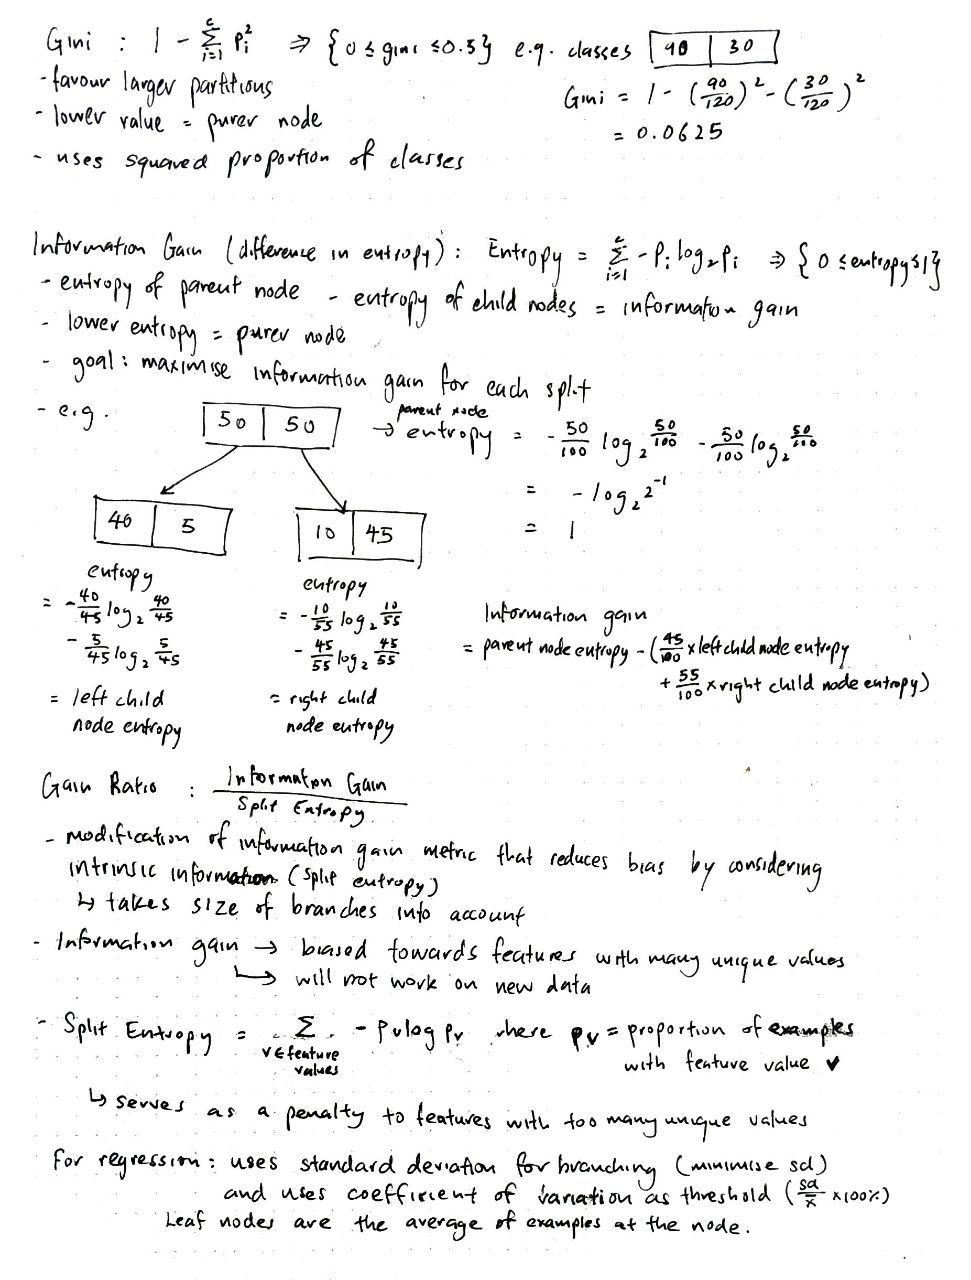 Gini : 1 - Σ_{i=1}^{c} p_i² ⇒ {0 ≤ gini ≤ 0.5} e.g. classes 90 | 30
- favour larger partitions
Gini = 1 - (90/120)² - (30/120)²
- lower value = purer node
= 0.0625
- uses squared proportion of classes
Information Gain (difference in entropy) : Entropy = Σ_{i=1}^{c} -P_i log₂ P_i ⇒ {0 ≤ entropy ≤ 1}
- entropy of parent node - entropy of child nodes = information gain
- lower entropy = purer node
- goal : maximise information gain for each split
- e.g.
50 | 50
parent node
→ entropy = - 50/100 log₂ 50/100 - 50/100 log₂ 50/100
= - log₂ 2⁻¹
= 1
40 | 5
10 | 45
entropy
= - 40/45 log₂ 40/45
- 5/45 log₂ 5/45
= left child
node entropy
entropy
= - 10/55 log₂ 10/55
- 45/55 log₂ 45/55
= right child
node entropy
Information gain
= parent node entropy - (45/100 x left child node entropy
+ 55/100 x right child node entropy)
Gain Ratio : Information Gain / Split Entropy
- modification of information gain metric that reduces bias by considering
intrinsic information (split entropy)
↳ takes size of branches into account
- Information gain → biased towards features with many unique values
↳ will not work on new data
- Split Entropy = Σ_{v ∈ feature values} - Pv log Pv where pv = proportion of examples
with feature value v
↳ serves as a penalty to features with too many unique values
For regression : uses standard deviation for branching (minimise sd)
and uses coefficient of variation as threshold (sd/x̄ x 100%)
Leaf nodes are the average of examples at the node.